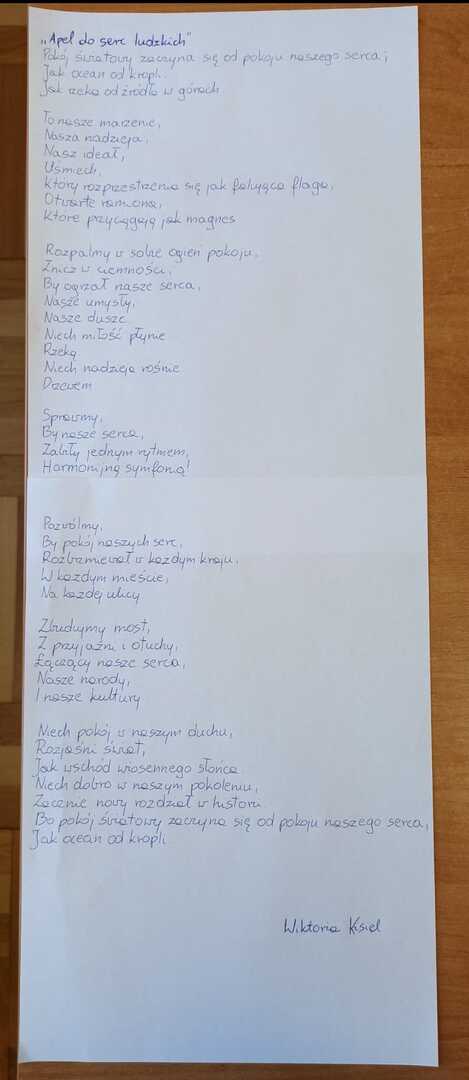 „Apel do serc ludzkich"
Pokój światowy zaczyna się od pokoju naszego serca;
Jak ocean od kropli.
Jak rzeka od źródła w górach
To nasze marzenie,
Nasza nadzieja,
Nasz ideał,
Uśmiech,
Który rozprzestrzenia się jak falująca flaga,
Otwarte ramiona,
Które przyciągają jak magnes
Rozpalmy w sobie ogień pokoju,
Znicz w ciemności,
By ogrzał nasze serca,
Nasze umysły,
Nasze dusze
Niech miłość płynie
Rzeką
Niech nadzieja rośnie
Drzewem
Sprawmy,
By nasze serca,
Zabiły jednym rytmem,
Harmonijną symfonią!
Pozwólmy,
By pokój naszych serc,
Rozbrzmiewał w każdym kraju,
W każdym mieście,
Na każdej ulicy
Zbudujmy most,
Z przyjaźni i otuchy,
Łączący nasze serca,
Nasze narody,
I nasze kultury
Niech pokój w naszym duchu,
Rozjaśni świat,
Jak wschód wiosennego słońca
Niech dobro w naszym pokoleniu,
Zacznie nowy rozdział w historii
Bo pokój światowy zaczyna się od pokoju naszego serca,
Jak ocean od kropli.
Wiktoria Kisiel